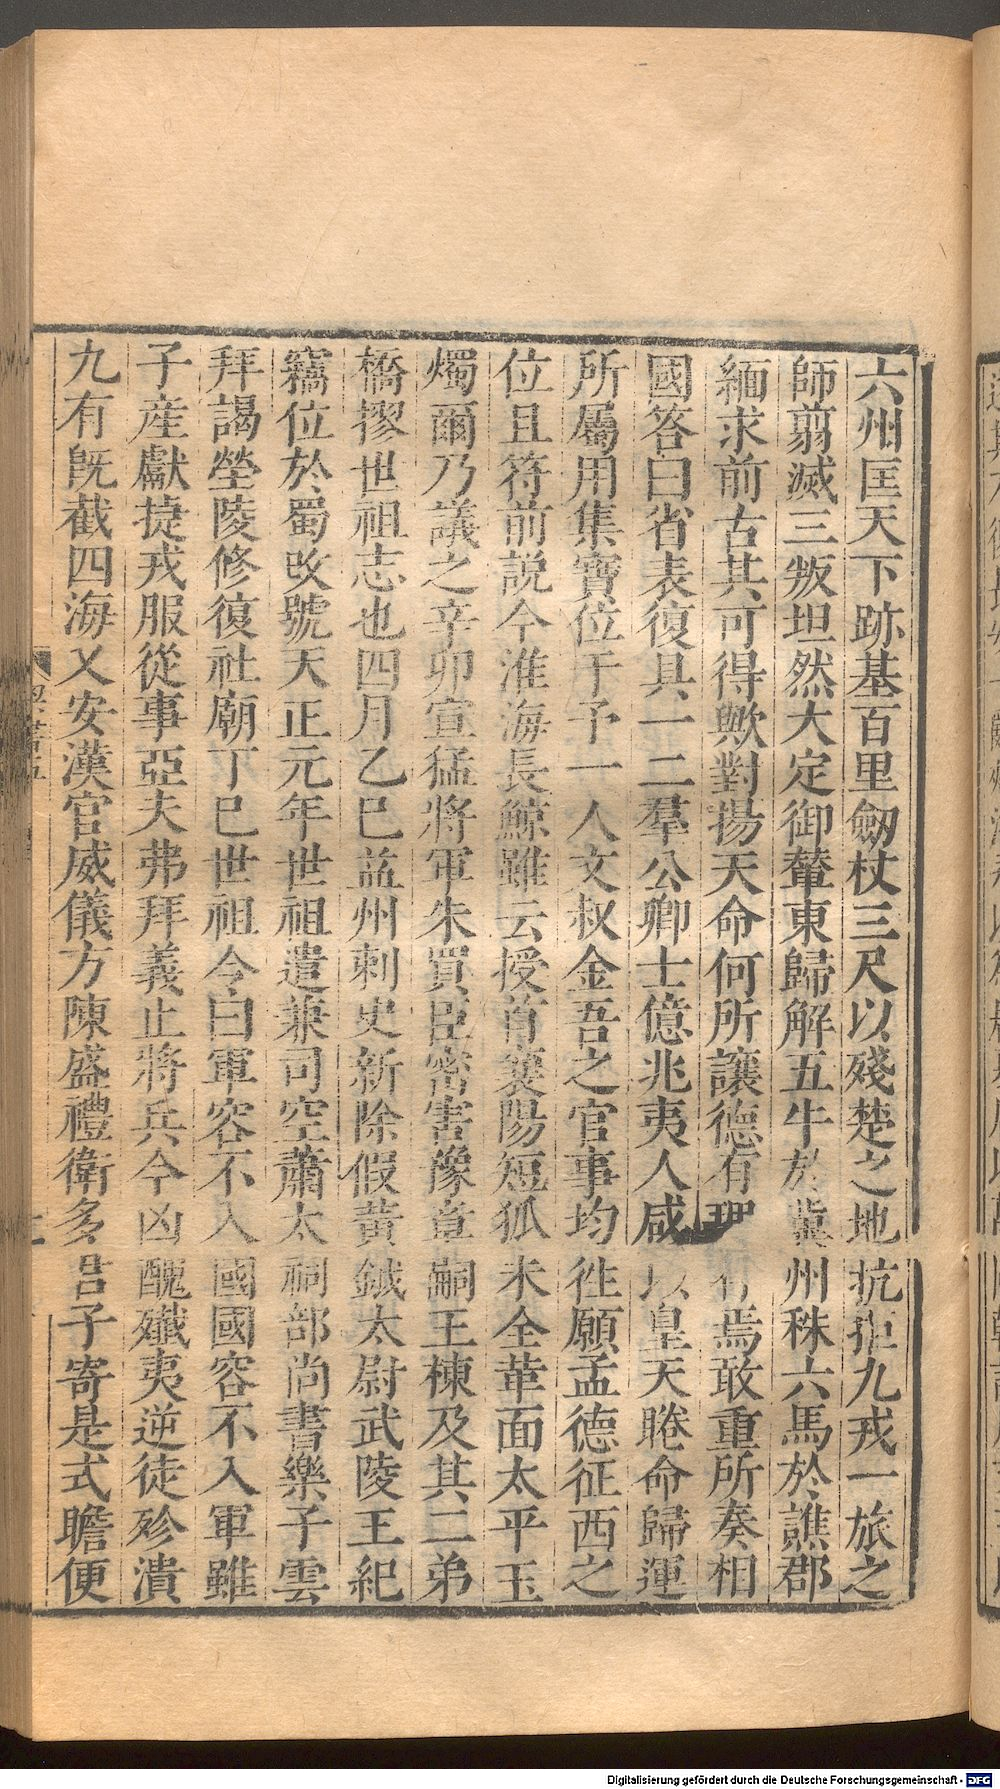 六州匡天下跡基百里劒杖三尺以殘楚之地抗拒九戎一旅之
師翦滅三叛坦然大定御輦東歸解五牛於冀州秣六馬於譙郡
緬求前古其可得歟對揚天命何所讓德有理存焉敢重所奏相
國答曰省表復具一二羣公卿士億兆夷人咸以皇天睠命歸運
所屬用集寶位于予一人文叔金吾之官事均往願孟德征西之
位且符前説今淮海長鯨雖云授首襄陽短狐未全革面太平玉
燭爾乃議之辛卯宣猛將軍朱買臣密害豫章嗣王棟及其二弟
橋摎世祖志也四月乙巳益州刺史新除假黃鉞太尉武陵王紀
竊位於蜀改號天正元年世祖遣兼司空蕭太祠部尚書樂子雲
拜謁塋陵修復社廟丁巳世祖令曰軍容不入國國容不入軍雖
子產獻捷戎服從事亞夫弗拜義止將兵今凶醜殲夷逆徒殄潰
九有旣截四海乂安漢官威儀方陳盛禮衛多君子寄是式瞻便
Digitalisierung gefördert durch die Deutsche Forschungsgemeinschaft - DFG